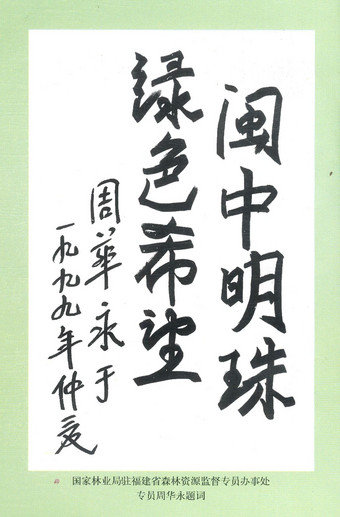 闽中明珠
绿色希望
周华永于
一九九九年仲夏
国家林业局驻福建省森林资源监督专员办事处
专员周华永题词